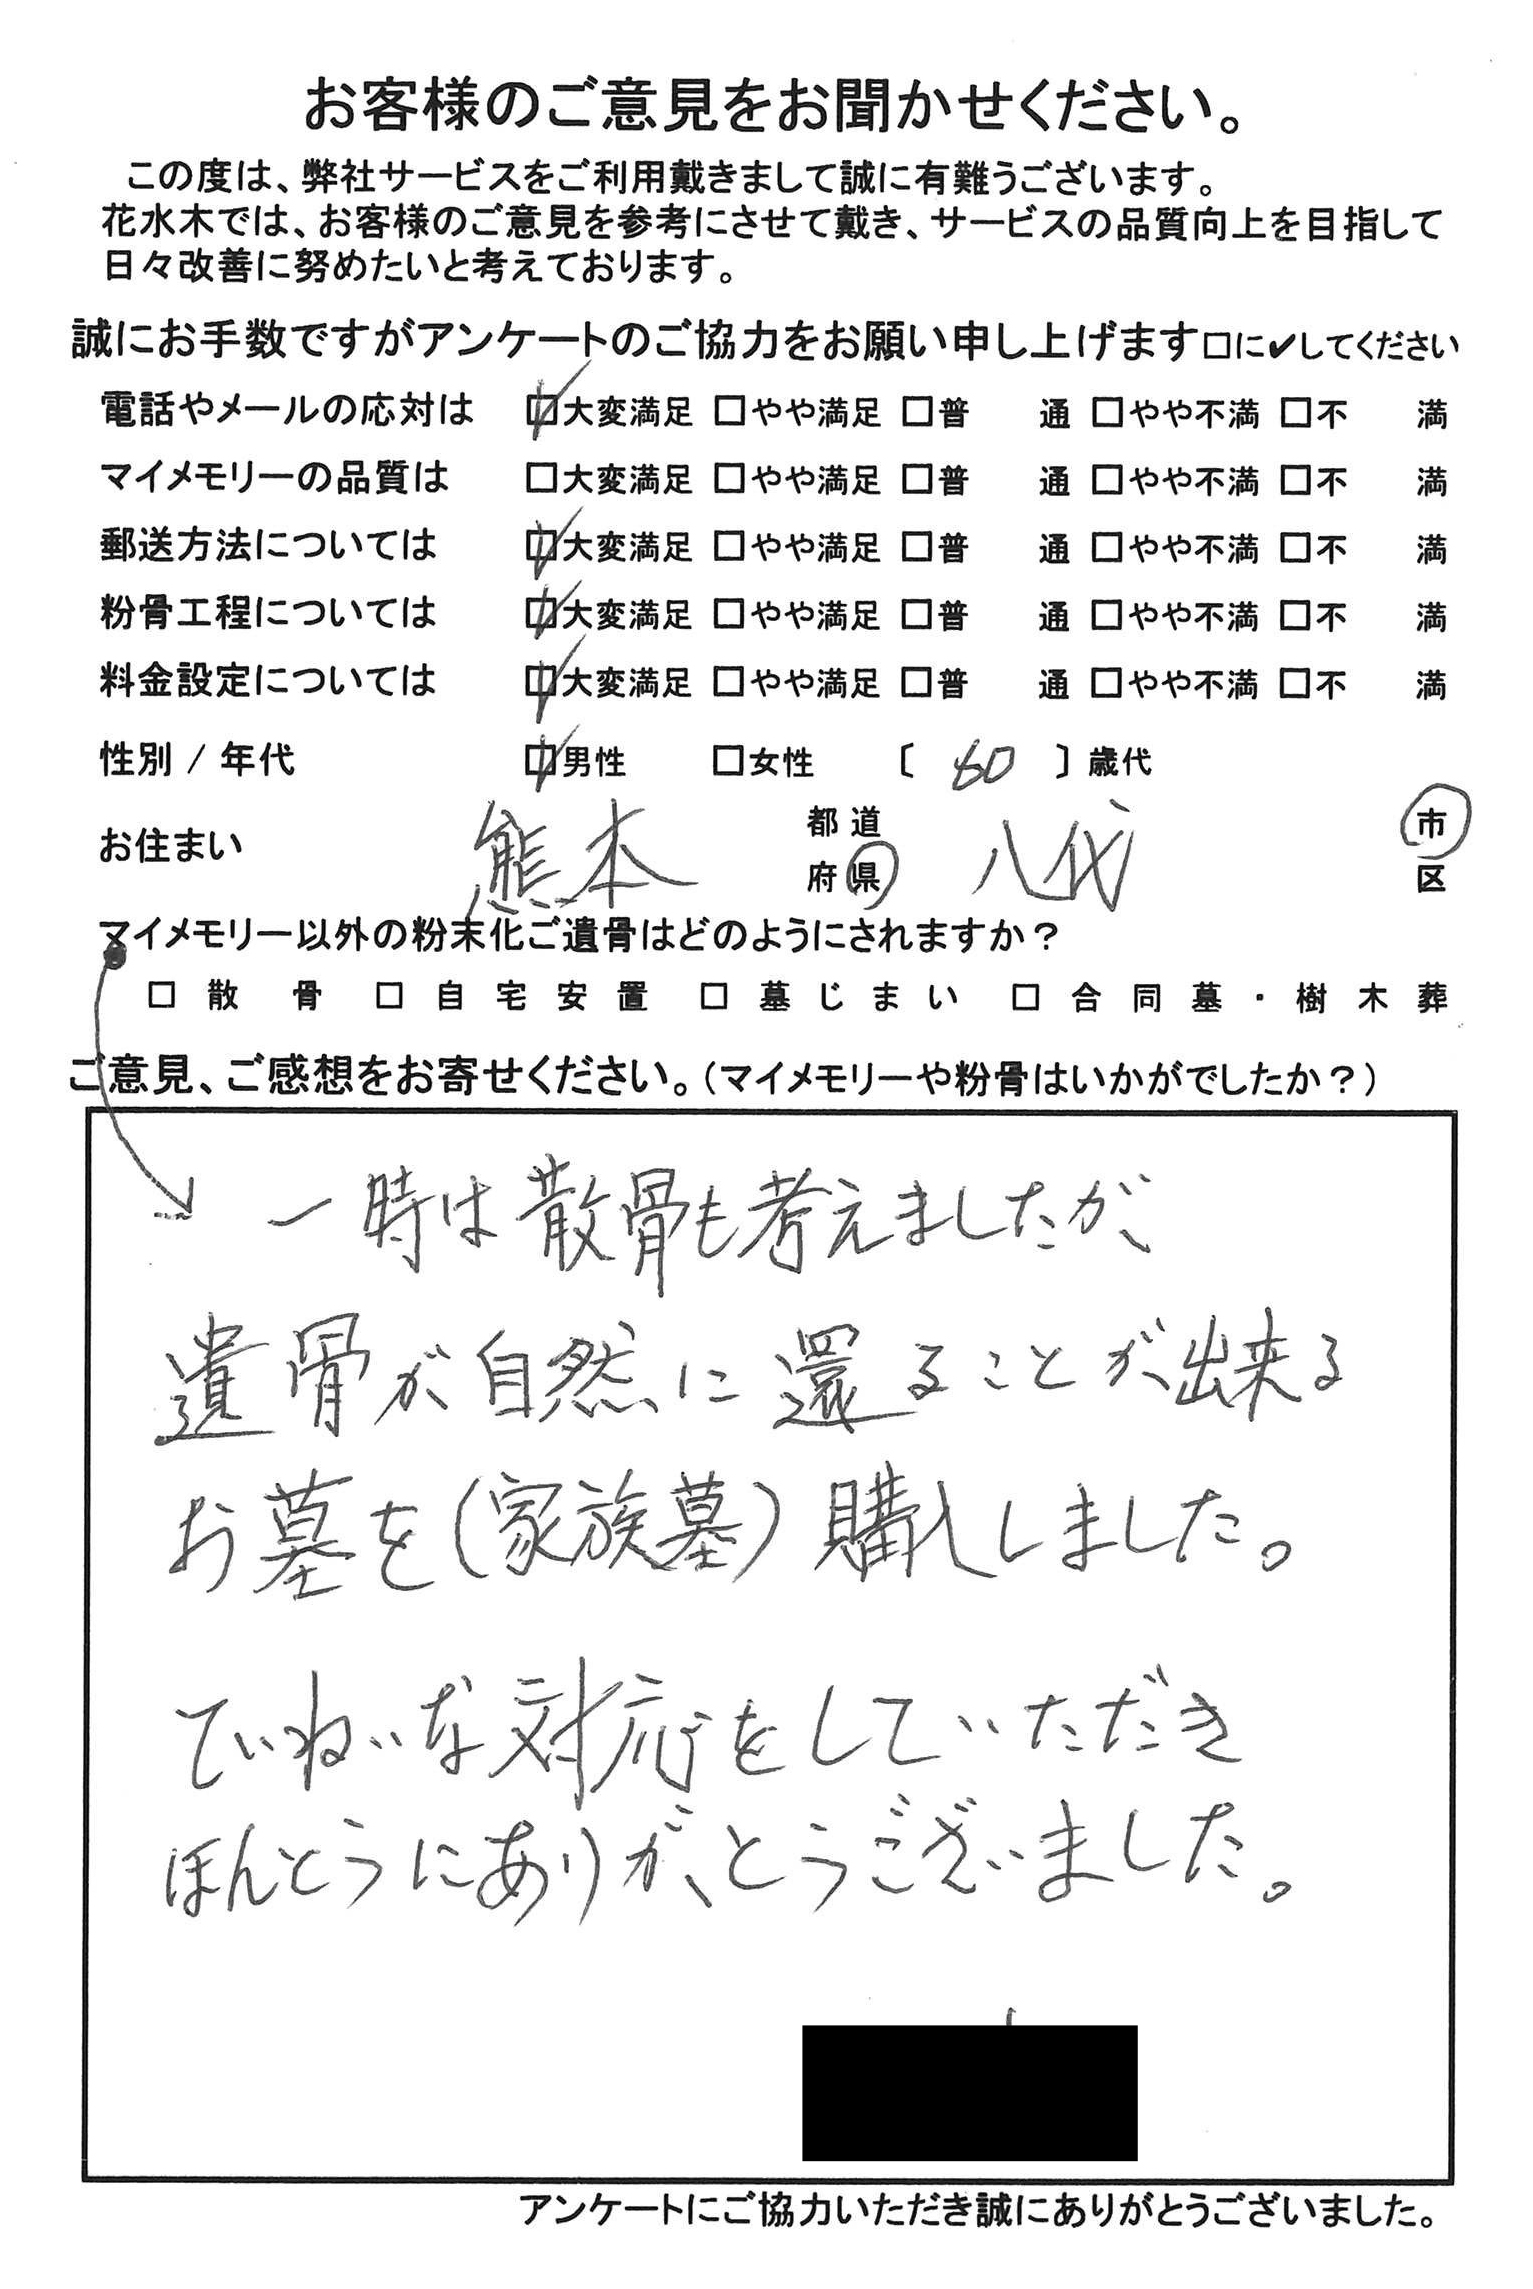 お客様のご意見をお聞かせください。
この度は、弊社サービスをご利用戴きまして誠に有難うございます。
花水木では、お客様のご意見を参考にさせて戴き、サービスの品質向上を目指して
日々改善に努めたいと考えております。
誠にお手数ですがアンケートのご協力をお願い申し上げます□に✔してください
電話やメールの応対は ☑大変満足 □やや満足 □普 通 □やや不満 □不 満
マイメモリーの品質は □大変満足 □やや満足 □普 通 □やや不満 □不 満
郵送方法については ☑大変満足 □やや満足 □普 通 □やや不満 □不 満
粉骨工程については ☑大変満足 □やや満足 □普 通 □やや不満 □不 満
料金設定については ☑大変満足 □やや満足 □普 通 □やや不満 □不 満
性別 / 年代 ☑男性 □女性 〔 60 〕歳代
お住まい 熊本 都道府県 八代 市区
マイメモリー以外の粉末化ご遺骨はどのようにされますか？
□ 散骨 □ 自宅安置 □ 墓じまい □ 合同墓・樹木葬
ご意見、ご感想をお寄せください。（マイメモリーや粉骨はいかがでしたか？）
一時は散骨も考えましたが、
遺骨が自然に還ることが出来る
お墓を（家族墓）購入しました。
ていねいな対応をしていただき
ほんとうにありがとうございました。
アンケートにご協力いただき誠にありがとうございました。